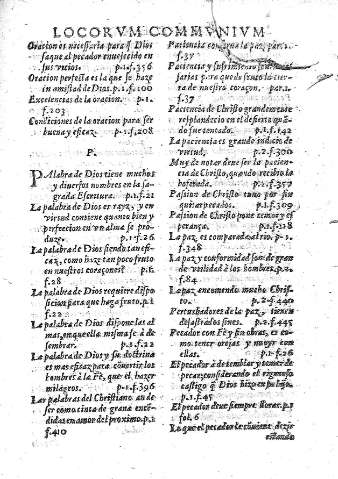 LOCORVM COMMVNIVM
Oracion es necessaria para q̃ Dios
saque al pecador enuejecido en
sus vicios. p.1.f.356
Oracion perfecta es la que se haze
in amistad de Dios. p.1.f.100
Excelencias de la oracion. p.1.
f.203
Condiciones de la oracion para ser
buena y eficaz. p.1.f.208
P.
PAlabra de Dios tiene muchos
y diuersos nombres en la sa-
grada Escritura. p.1.f.21
La palabra de Dios es rayz, y en
virtud contiene quanto bien y
perfeccion en vn alma se pro-
duze. p.1.f.26
La palabra de Dios siendo tan efi-
caz, como haze tan poco fruto
en nuestros coraçones? p.1.
f.28
La palabra de Dios requiere dispo-
sicion para que haga fruto. p.1
f.22
La palabra de Dios dispone las al
mas, en quella misma se à de
sembrar. p.1.f.22
La palabra de Dios y su doctrina
es mas eficaz para cõuertir los
hombres à la Fè, que el hazer
milagros. p.1.f.396
Las palabras del Christiano an de
ser como cinta de grana ente-
didas en amor del proximo. p.1
f.410
Paciencia conserua la paz. par.1.
f.37
Paciencia y sufrimiento son
jarias para la tier-
ra de nuestro coraçon. par.1.
f.37
Paciencia de Christo grandemente
resplandecio en el desierto quã-
do fue tentado. p.1.f.142
La paciencia es grande indicio de
virtud. p.2.f.300
Muy de notar deue ser la pacien-
cia de Christo, quando recibio la
bofetada. p.2.f.357
Passion de Christo tuuo por fin
quitar pecados. p.1.f.309
Passion de Christo pone temor y es
perança. p.1.f.118
La paz es comparada al rio. p.2.
f.348
La paz y conformidad son de gran
de vtilidad à los hombres. p.2.
f.84
La paz encomendo mucho Chris-
to. p.2.f.440
Perturbadores de la paz, tienen
desastrados fines. p.2.f.445
Pecador con Fè y sin obras, es co-
mo tener orejas y no oyr con
ellas. p.1.f.26
El pecador à de temblar y temer de
pecar, considerando el riguroso
castigo q̃ Dios hizo en su hijo.
p.1.f.45
El pecador deue siempre llorar. p.1
fol.6
Lo que el pecador le conuiene, dexis
estando